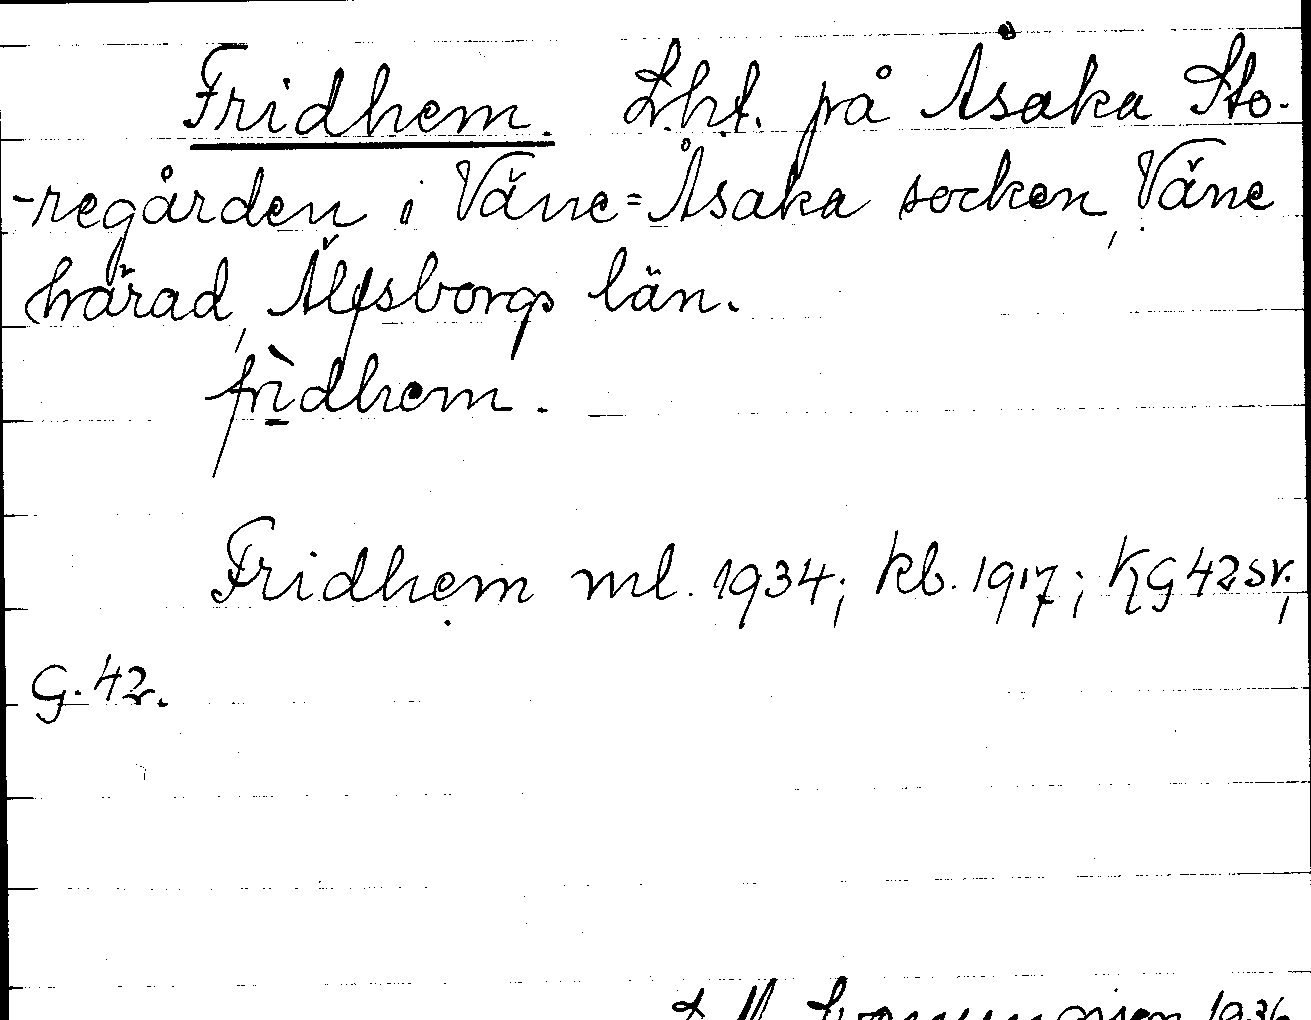 Fridhem. Lht. på Åsaka Sto-
-regården i Väne=Åsaka socken, Väne
härad, Älfsborgs län.
frìdhem.
Fridhem ml. 1934; kb. 1917; KG 42 sv.;
G. 42.
1936